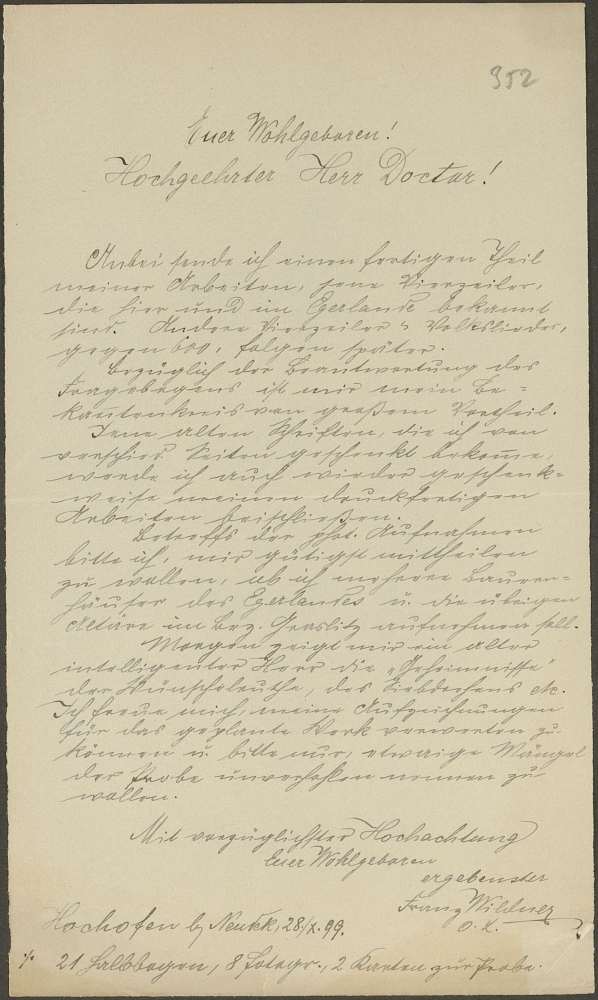 352
Euer Wohlgeboren!
Hochgeehrter Herr Doctor!
Anbei sende ich einen fertigen Theil
meiner Arbeiten, jene Vierzeiler,
die hier und im Egerlande bekannt
sind. Andere Vierzeiler u. Volkslieder,
gegen 600, folgen später.
Bezüglich der Beantwortung des
Fragebogens ist mir mein Be-
kanntenkreis von großem Vortheil.
Jene alten Schriften, die ich von
verschied. Seiten geschenkt bekomme,
werde ich auch wieder geschenk-
weise meinen druckfertigen
Arbeiten beischließen.
Betreffs der phot. Aufnahmen
bitte ich, mir gütigst mittheilen
zu wollen, ob ich mehrere Bauern-
häuser des Egerlandes u. die übrigen
Altäre im Bez. Graslitz aufnehmen soll.
Morgen zeigt mir ein alter
intelligenter Herr die „Geheimnisse"
der Wünschelruthe, des etc.
Ich freue mich, meine Aufzeichnungen
für das geplante Werk verwerten zu
können u. bitte nur, etwaige Mängel
der Probe unverhohlen nennen zu
wollen.
Mit vorzüglichster Hochachtung
Euer Wohlgeboren
ergebenster
Franz Wildner
O. L.
Hochofen b. Neudek, 28./X. 99.
./. 21 Halbbogen, 8 Fotogr., 2 Karten zur Probe.